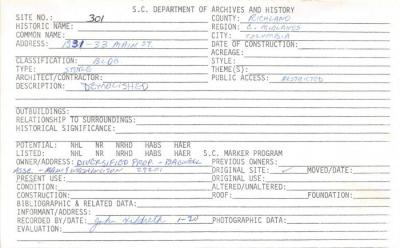 S.C. DEPARTMENT OF ARCHIVES AND HISTORY
SITE NO.: 301 COUNTY: RICHLAND
HISTORIC NAME: REGION: C. MIDLANDS
COMMON NAME: CITY: COLUMBIA
ADDRESS: 1531-33 MAIN ST. DATE OF CONSTRUCTION:
ACREAGE:
CLASSIFICATION: BLDG STYLE:
TYPE: STORE THEME(S):
ARCHITECT/CONTRACTOR: PUBLIC ACCESS: RESTRICTED
DESCRIPTION: DEMOLISHED
OUTBUILDINGS:
RELATIONSHIP TO SURROUNDINGS:
HISTORICAL SIGNIFICANCE:
POTENTIAL: NHL NR NRHD HABS HAER
LISTED: NHL NR NRHD HABS HAER S.C. MARKER PROGRAM
OWNER/ADDRESS: DIVERSIFIED PROP. - PREVIOUS OWNERS:
MAIN & WASHINGTON 29201 ORIGINAL SITE: ✓ MOVED/DATE:
PRESENT USE: ORIGINAL USE:
CONDITION: ALTERED/UNALTERED:
CONSTRUCTION: ROOF: FOUNDATION:
BIBLIOGRAPHIC & RELATED DATA:
INFORMANT/ADDRESS:
RECORDED BY/DATE: John 1-20 PHOTOGRAPHIC DATA:
EVALUATION: